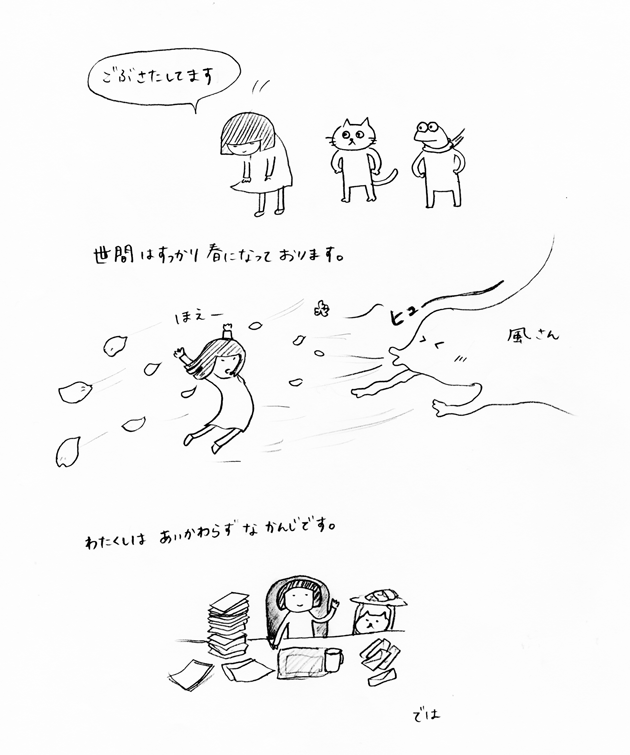 ごぶさたしてます
世間はすっかり春になっております。
ほえー
ヒュー
風さん
わたくしは あいかわらず な かんじです。
では